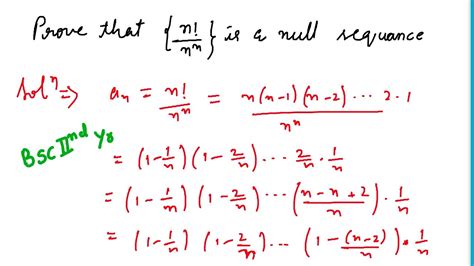 Prove that {n!/nⁿ} is a null sequance
Solⁿ ⇒ aₙ = n!/nⁿ = n(n-1)(n-2)⋯2·1/nⁿ
BSC IInd Yr
= (1-1/n)(1-2/n)⋯2/n·1/n
= (1-1/n)(1-2/n)⋯((n-n+2)/n)·1/n
= (1-1/n)(1-2/n)⋯(1-(n-2)/n)·1/n